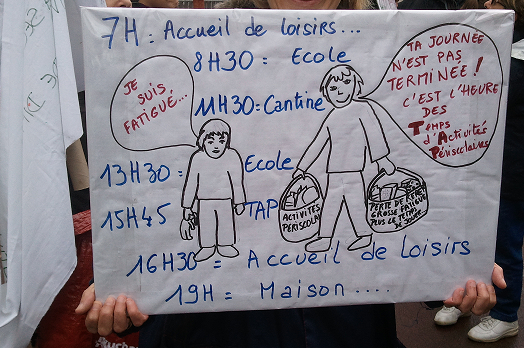 7H : Accueil de loisirs...
8H30 : Ecole
JE
SUIS
FATIGUÉ...
TA JOURNÉE
N'EST PAS
TERMINÉE !
C'EST L'HEURE
DES
Temps
d'Activités
Périscolaires
11H30 = Cantine
13H30 = Ecole
15H45 TAP
ACTIVITÉS
PÉRISCOLA
PERTE DE
GROSSE FATIGUE
PLUS LE TEMPS
DE JOUER
16H30 = Accueil de loisirs
19H = Maison ....